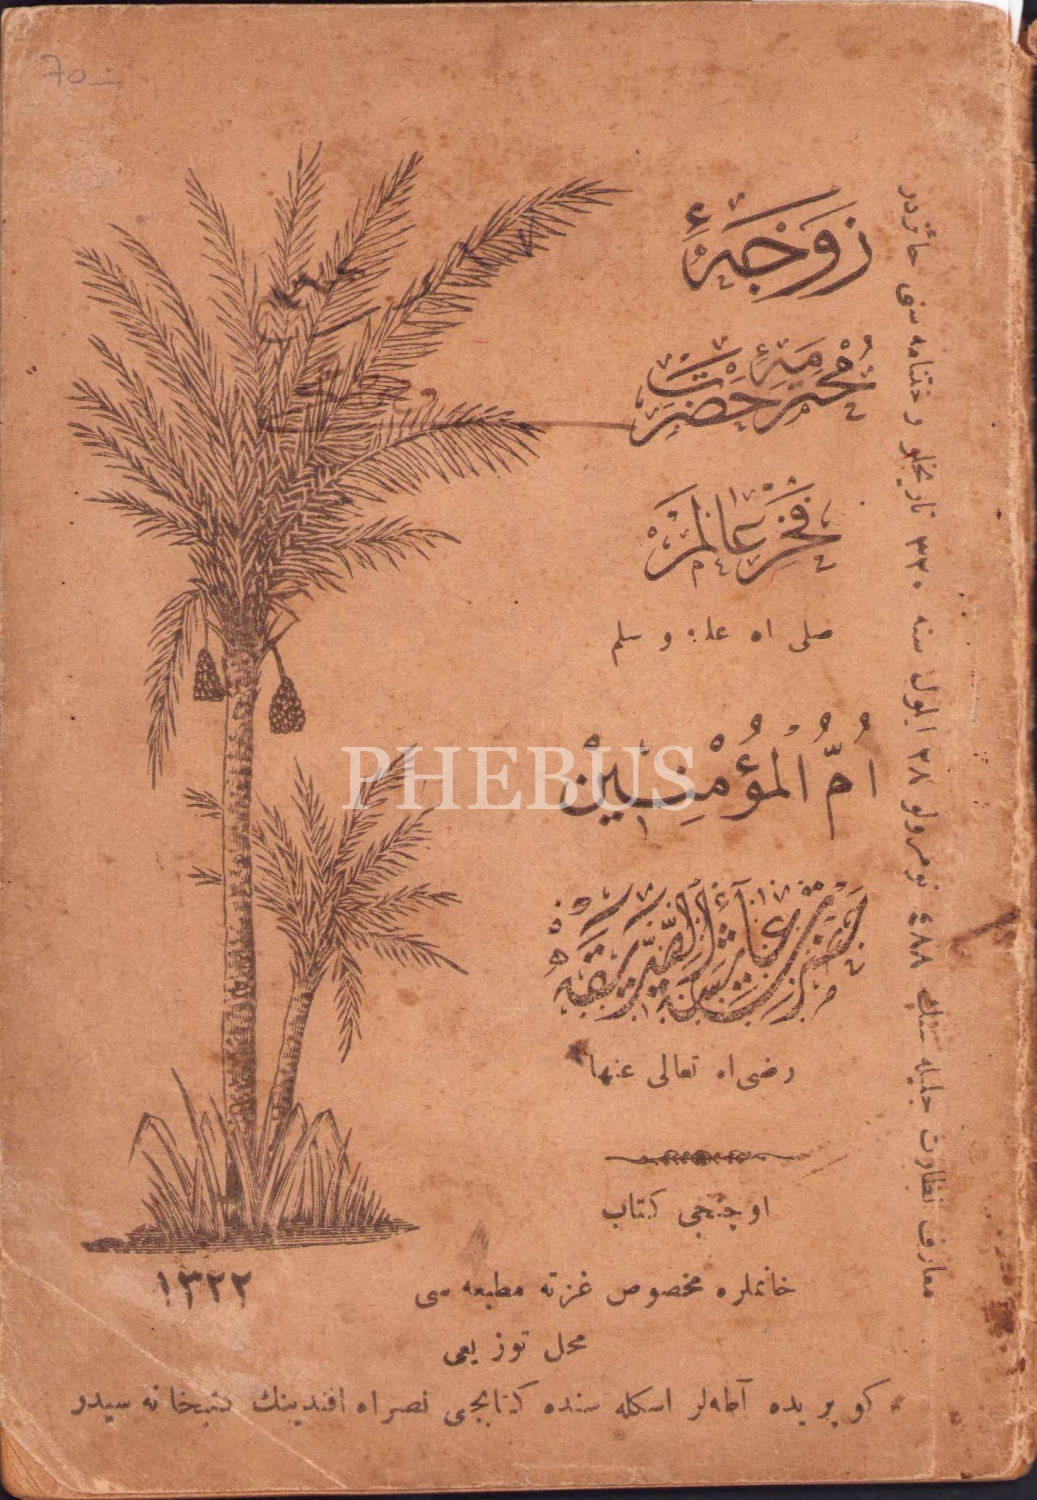 70
زَوْجَۀ
مُحْتَرَمَۀ حَضْرَتِ
فَخْرِ عَالَمْ
صلی الله علیه و سلم
اُمُّ الْمُؤْمِنِينْ
حضرت عائشة الصديقه
رضی الله تعالی عنها
اوچنجی کتاب
خانملره مخصوص غزته مطبعه سی
١٣٢٢
محل توزیعی
کوپریده آطه‌لر اسکله سنده کتابجی نصر الله افندینك کتبخانه سیدر
معارف نظارت جلیله سنك ٤٨٨ نومرولو ٢٨ ایلول سنه ٣٢٠ تاریخلو رخصتنامه سنی حائزدر
PHEBUS